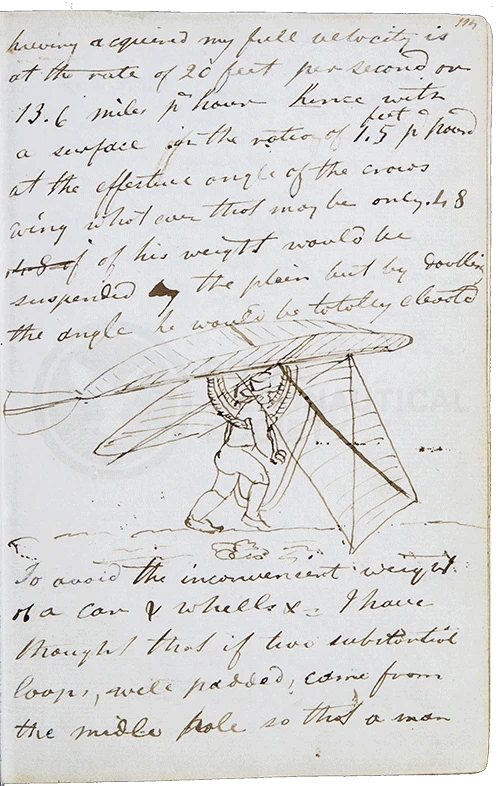 having acquired my full velocity is
at the rate of 20 feet per second or
13.6 miles pr hour hence with
a surface in the ratio of 1.5 feet pr pound
at the effective angle of the crows
wing what ever that may be only .48
of his weight would be
suspended by the plain but by doubling
the angle he would be totolly elevated
To avoid the inconvenient weight
of a car & wheels &c I have
thought that if two substantial
loops, well padded, came from
the middle pole so that a man